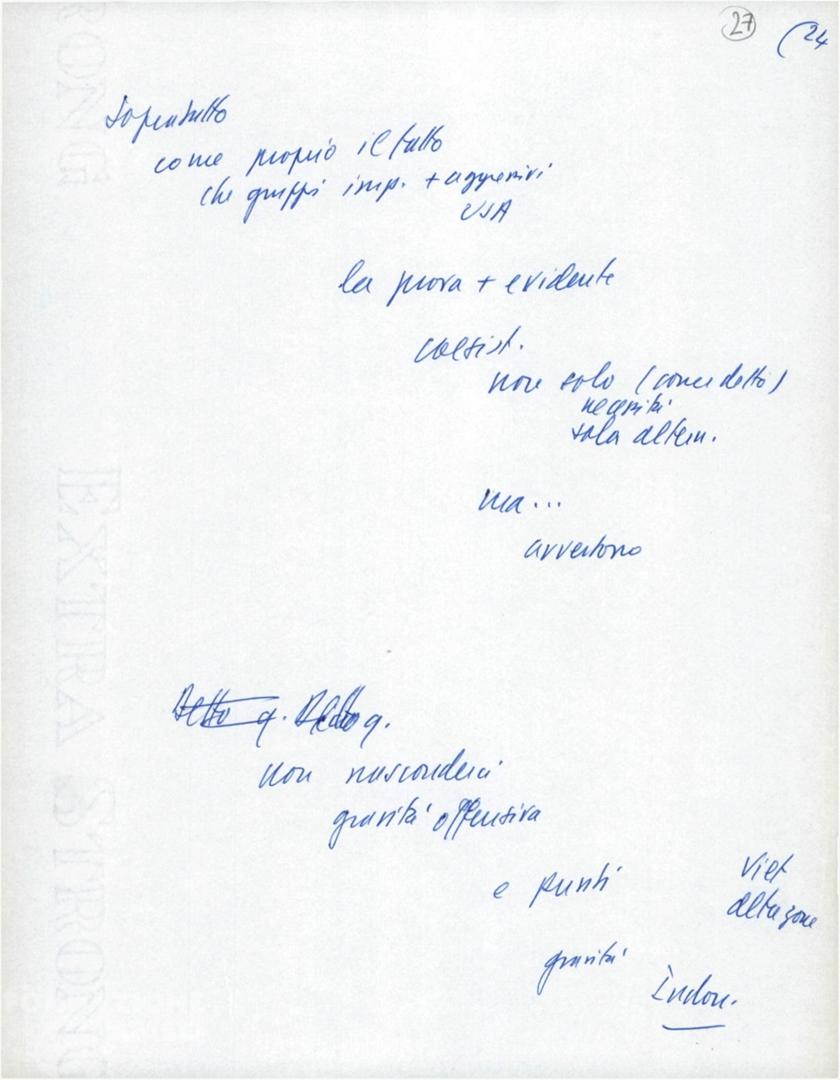 27 (24
Soprattutto
come proprio il fatto
che gruppi imp. + aggressivi
USA
la prova + evidente
coesist.
non solo (come detto)
necessità
sola altern.
ma...
avvertono
Detto q. Detto q.
non nasconderci
gravità offensiva
e punti
Viet
altre zone
gravità
Indon.
EXTRA STRONG